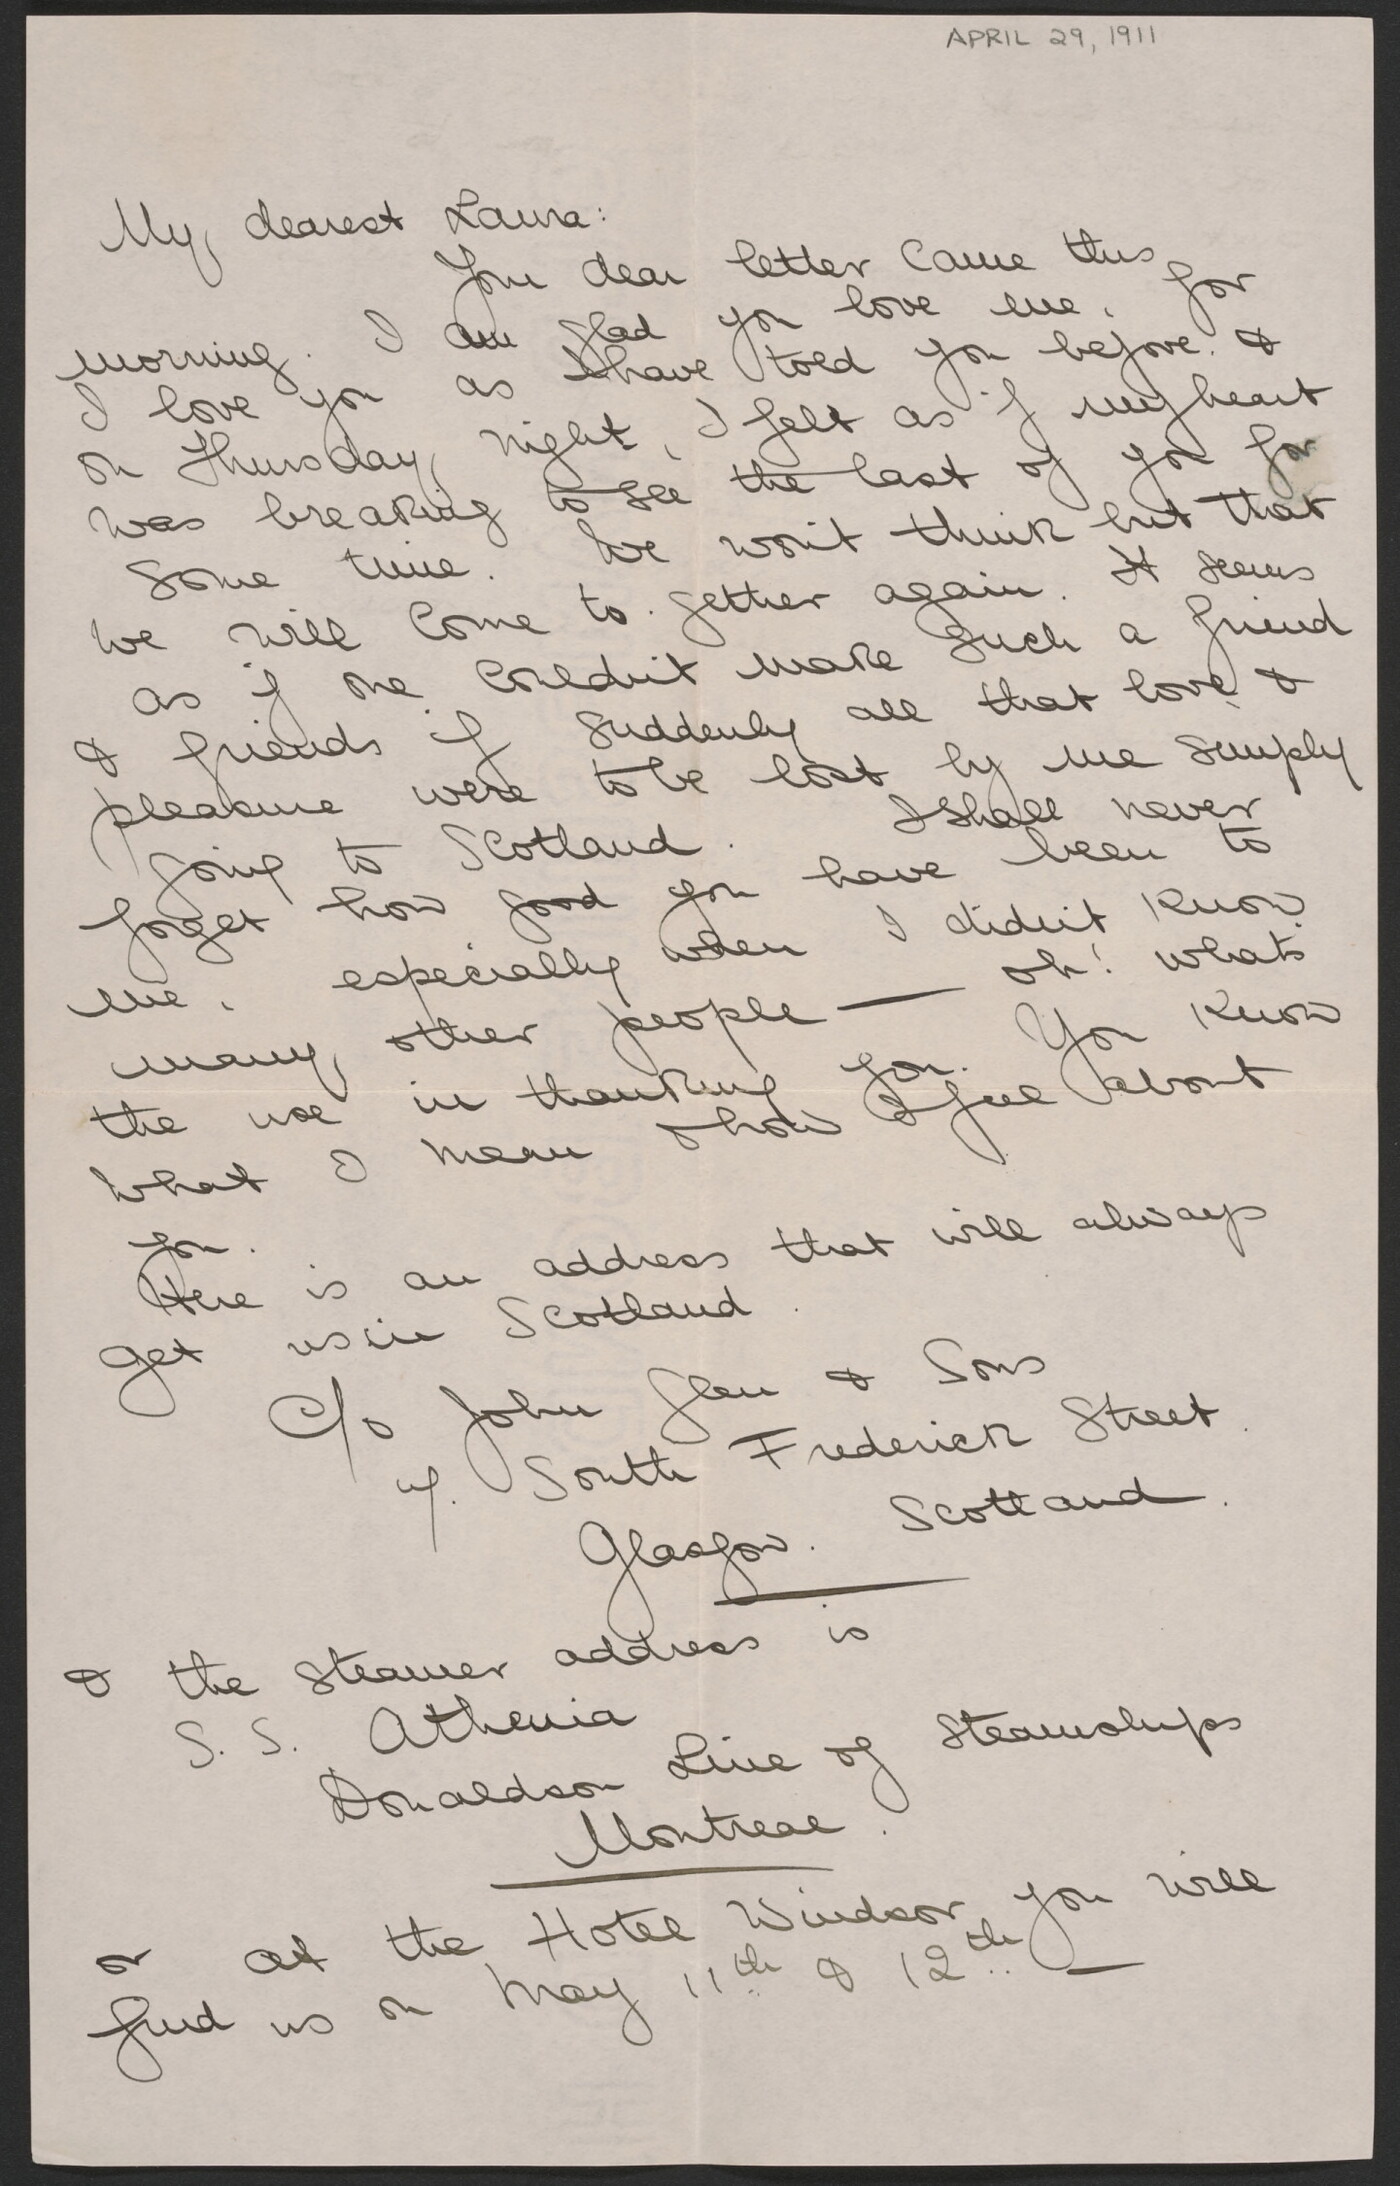 APRIL 29, 1911
My dearest Laura:
Your dear letter came this
morning. I am glad you love me, for
I love you as I have told you before. &
on Thursday night, I felt as if my heart
was breaking to see the last of you for
some time. We won't think but that
we will come to. gether again. It seems
as if one couldn't make such a friend
& friends if suddenly all that love &
pleasure were to be lost by me simply
going to Scotland. I shall never
forget how good you have been to
me, especially when I didn't know
many other people — oh! whats
the use in thanking you. You know
what I mean & how I feel about
you.
Here is an address that will always
get us in Scotland.
C/o John Glen & Sons
South Frederick Street.
Glasgow. Scotland.
& the steamer address is
S. S. Athenia
Donaldson Line of Steamships
Montreal.
or at the Hotel Windsor you will
find us on May 11th & 12th. —